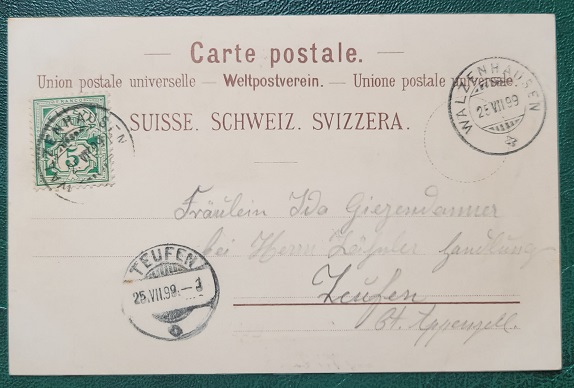 Carte postale.
Union postale universelle — Weltpostverein. — Unione postale universale.
SUISSE. SCHWEIZ. SVIZZERA.
FRANCO
5
WALZENHAUSEN
WALZENHAUSEN
25.VII.99
Fräulein Ida Giezendanner
bei Herrn Handlung
Teufen
Ct. Appenzell.
TEUFEN
25.VII.99.